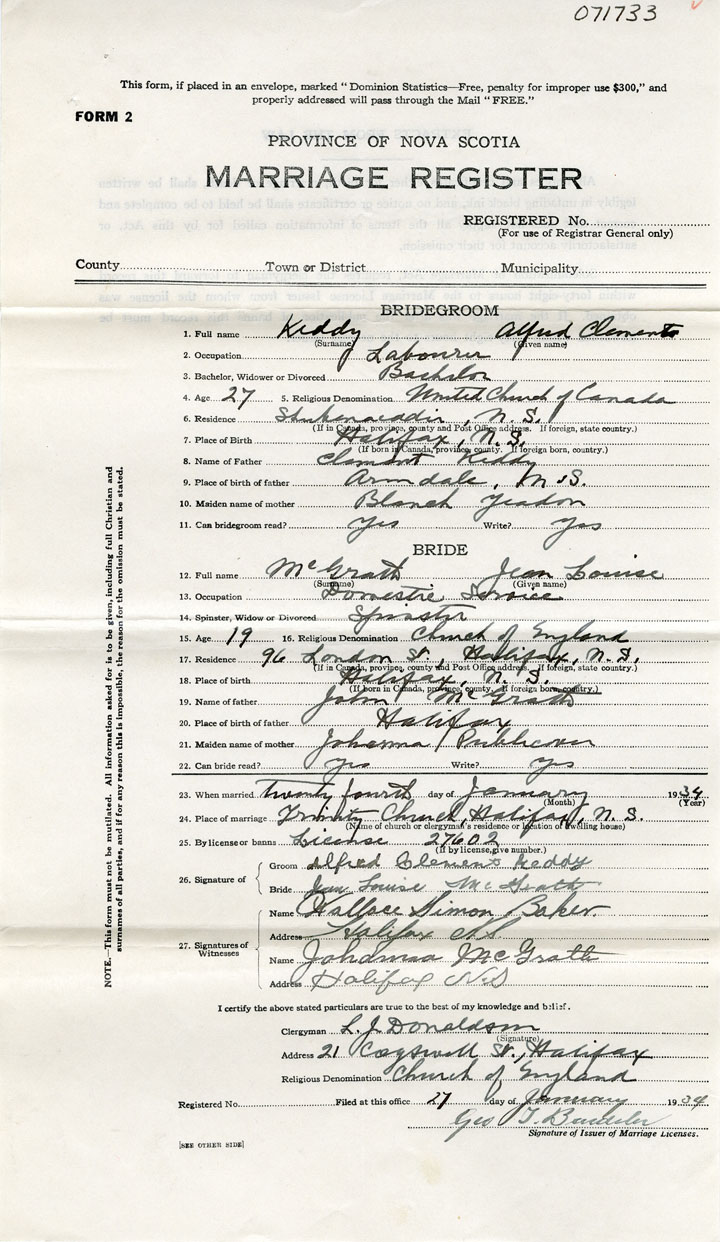 071733
This form, if placed in an envelope, marked "Dominion Statistics—Free, penalty for improper use $300," and
properly addressed will pass through the Mail "FREE."
FORM 2
PROVINCE OF NOVA SCOTIA
MARRIAGE REGISTER
REGISTERED No.
(For use of Registrar General only)
County Town or District Municipality
BRIDEGROOM
1. Full name Keddy Alfred Clements
(Surname) (Given name)
2. Occupation Labourer
3. Bachelor, Widower or Divorced Bachelor
4. Age 27 5. Religious Denomination United Church of Canada
6. Residence N.S.
(If in Canada, province, county and Post Office address. If foreign, state country.)
7. Place of Birth Halifax, N.S.
(If born in Canada, province, county. If foreign born, country.)
8. Name of Father Clement Keddy
9. Place of birth of father Armdale, N.S.
10. Maiden name of mother Blanch Yeadon
11. Can bridegroom read? Yes Write? Yes
BRIDE
12. Full name McGrath Jean Louise
(Surname) (Given name)
13. Occupation Domestic Service
14. Spinster, Widow or Divorced Spinster
15. Age 19 16. Religious Denomination Church of England
17. Residence 96 London St., Halifax, N.S.
(If in Canada, province, county and Post Office address. If foreign, state country.)
18. Place of birth Halifax, N.S.
(If born in Canada, province, county. If foreign born, country.)
19. Name of father John McGrath
20. Place of birth of father Halifax
21. Maiden name of mother Johanna Publicover
22. Can bride read? Yes Write? Yes
23. When married twenty fourth day of January 1934
(Month) (Year)
24. Place of marriage Trinity Church, Halifax, N.S.
(Name of church or clergyman's residence or location of dwelling house)
25. By license or banns License 27602
(If by license, give number.)
26. Signature of
Groom Alfred Clements Keddy
Bride Jean Louise McGrath
27. Signatures of Witnesses
Name Wallace Simon Baker
Address Halifax N.S.
Name Johanna McGrath
Address Halifax N.S
I certify the above stated particulars are true to the best of my knowledge and belief.
Clergyman L. J. Donaldson
(Signature)
Address 21 Cogswell St., Halifax
Religious Denomination Church of England
Registered No. Filed at this office 27 day of January 1934
Geo T.
Signature of Issuer of Marriage Licenses.
[SEE OTHER SIDE]
NOTE.—This form must not be mutilated. All information asked for is to be given, including full Christian and
surnames of all parties, and if for any reason this is impossible, the reason for the omission must be stated.